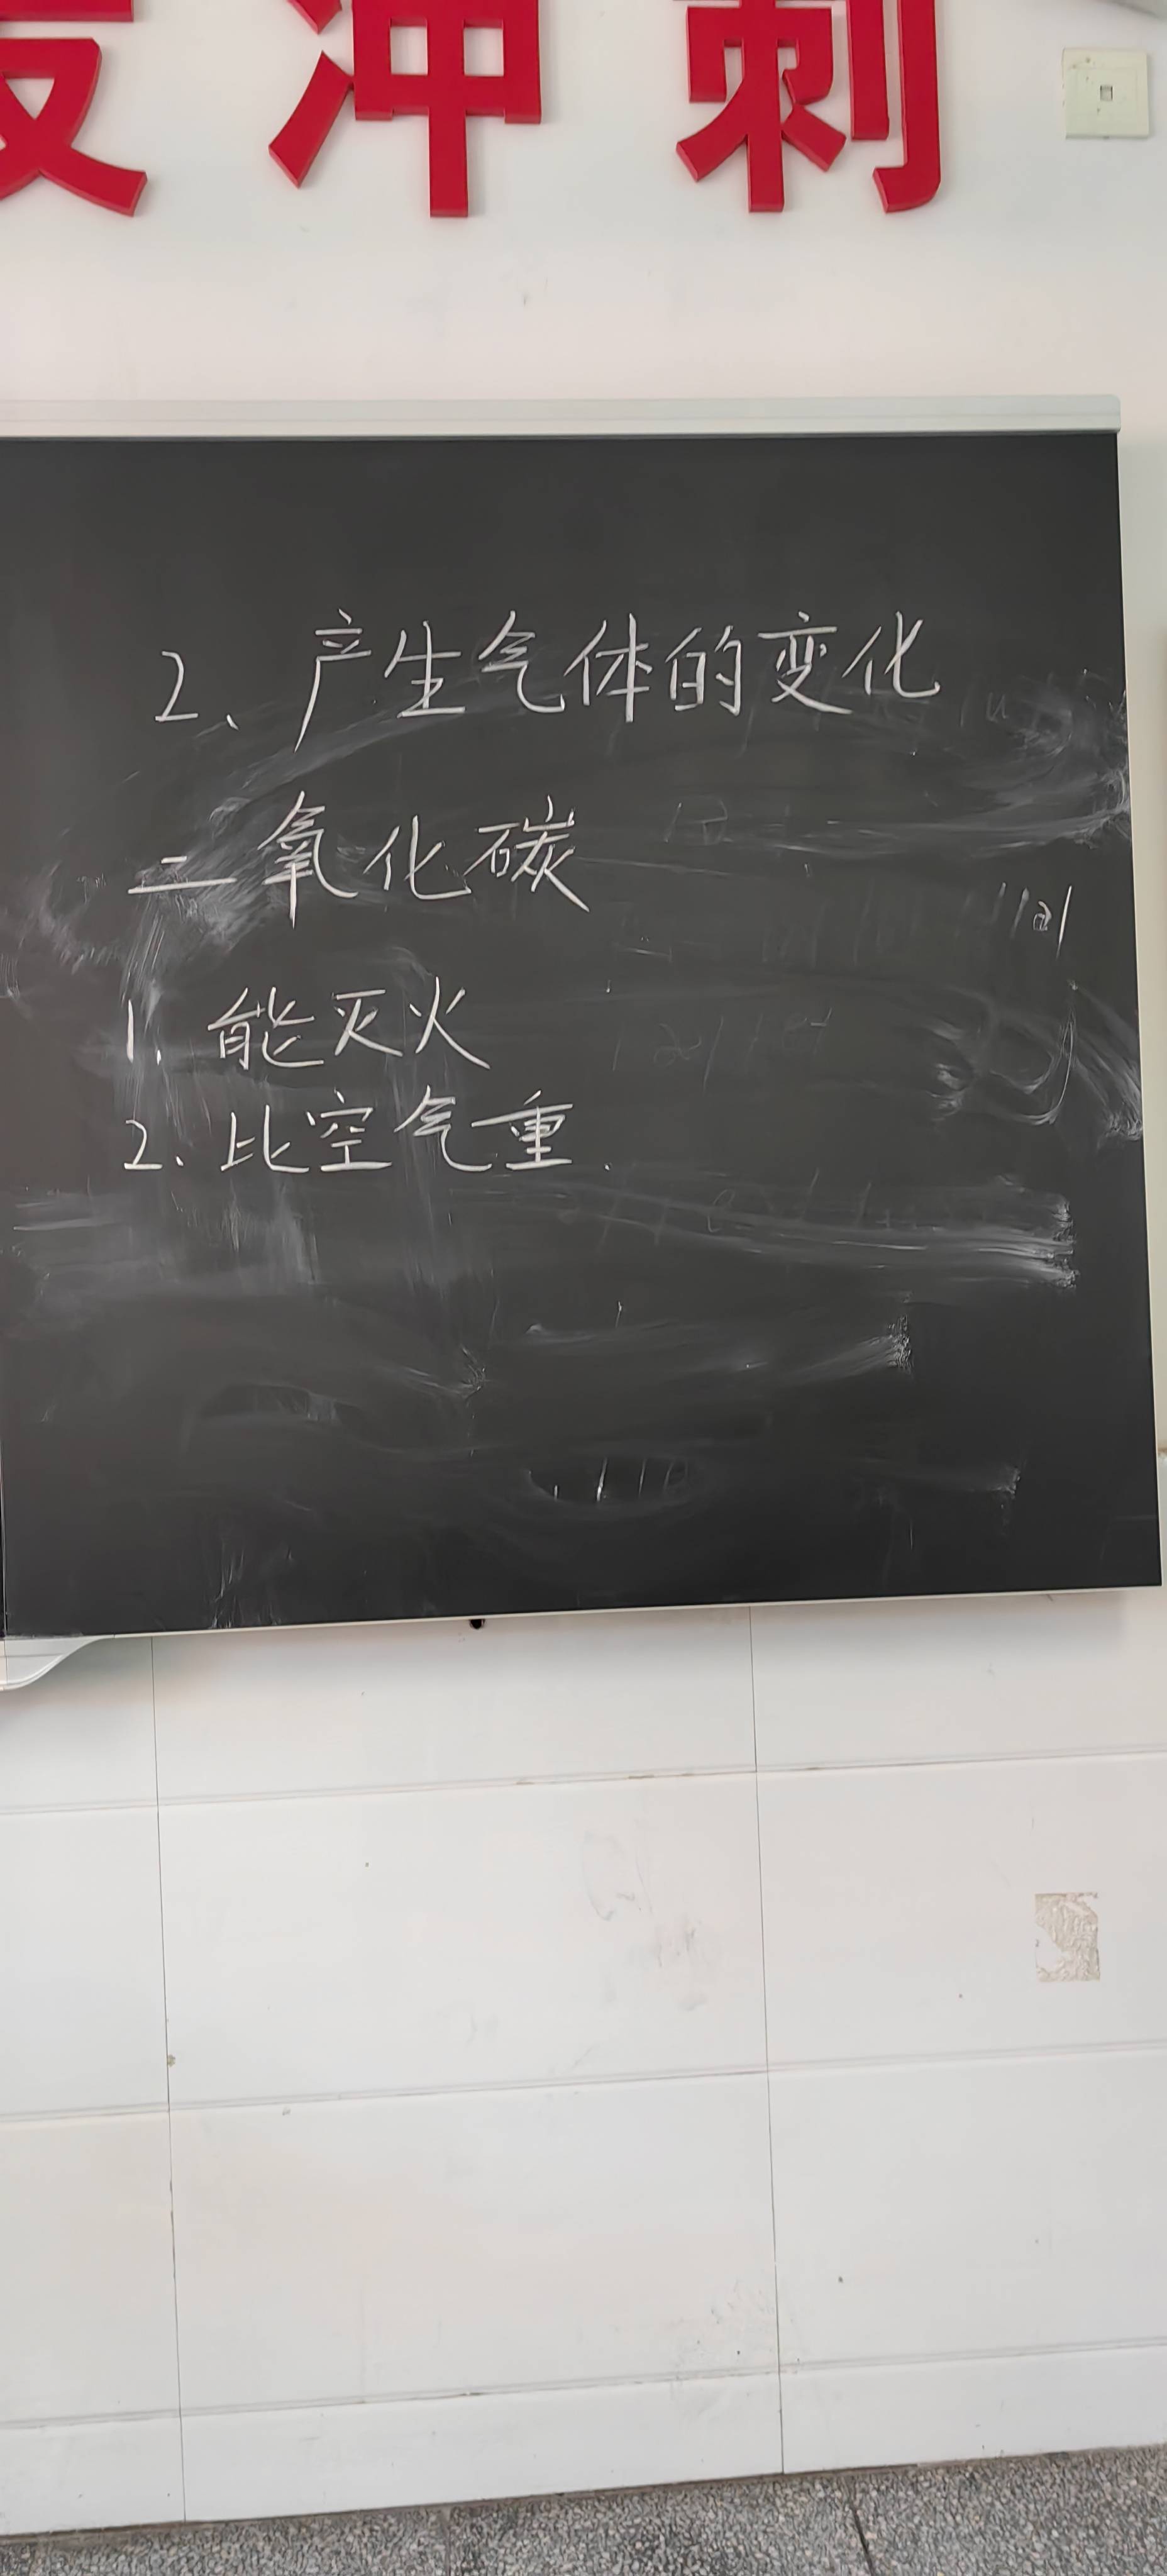 冲刺
2、产生气体的变化
二氧化碳
1. 能灭火
2、比空气重.